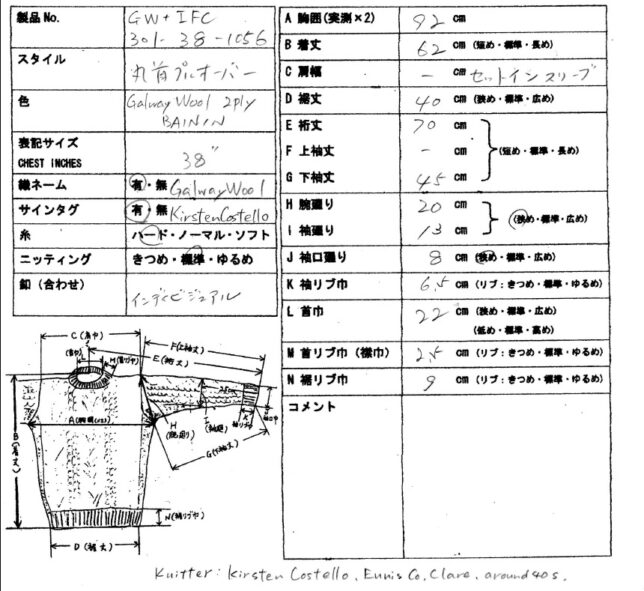 製品No.
GW+IFC
301-38-1056
スタイル
丸首プルオーバー
色
Galway Wool 2ply
BAININ
表記サイズ
CHEST INCHES
38"
織ネーム
有・無 Galway Wool
サインタグ
有・無 Kirsten Costello
糸
ハード・ノーマル・ソフト
ニッティング
きつめ・標準・ゆるめ
釦（合わせ）
インディビジュアル
A 胸囲(実測×2) 92 cm
B 着丈 62 cm (短め・標準・長め)
C 肩幅 - cm セットインスリーブ
D 裾丈 40 cm (狭め・標準・広め)
E 裄丈 70 cm
F 上袖丈 - cm (短め・標準・長め)
G 下袖丈 45 cm
H 腕廻り 20 cm
(狭め・標準・広め)
I 袖廻り 13 cm
J 袖口廻り 8 cm (狭め・標準・広め)
K 袖リブ巾 6.5 cm (リブ：きつめ・標準・ゆるめ)
L 首巾 22 cm (狭め・標準・広め)
(低め・標準・高め)
M 首リブ巾（襟巾） 2.5 cm (リブ：きつめ・標準・ゆるめ)
N 裾リブ巾 9 cm (リブ：きつめ・標準・ゆるめ)
コメント
F(上袖丈)
E(裄丈)
B(着丈)
H(腕廻り)
G(下袖丈)
N(裾リブ巾)
D(裾丈)
Knitter: Kirsten Costello, Ennis Co. Clare, around 40s.